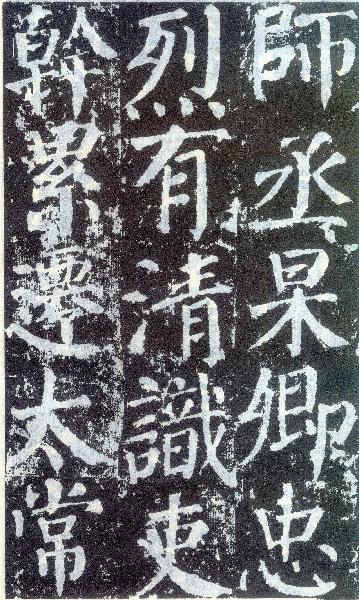 師丞杲卿忠
烈有清識吏
幹累遷太常